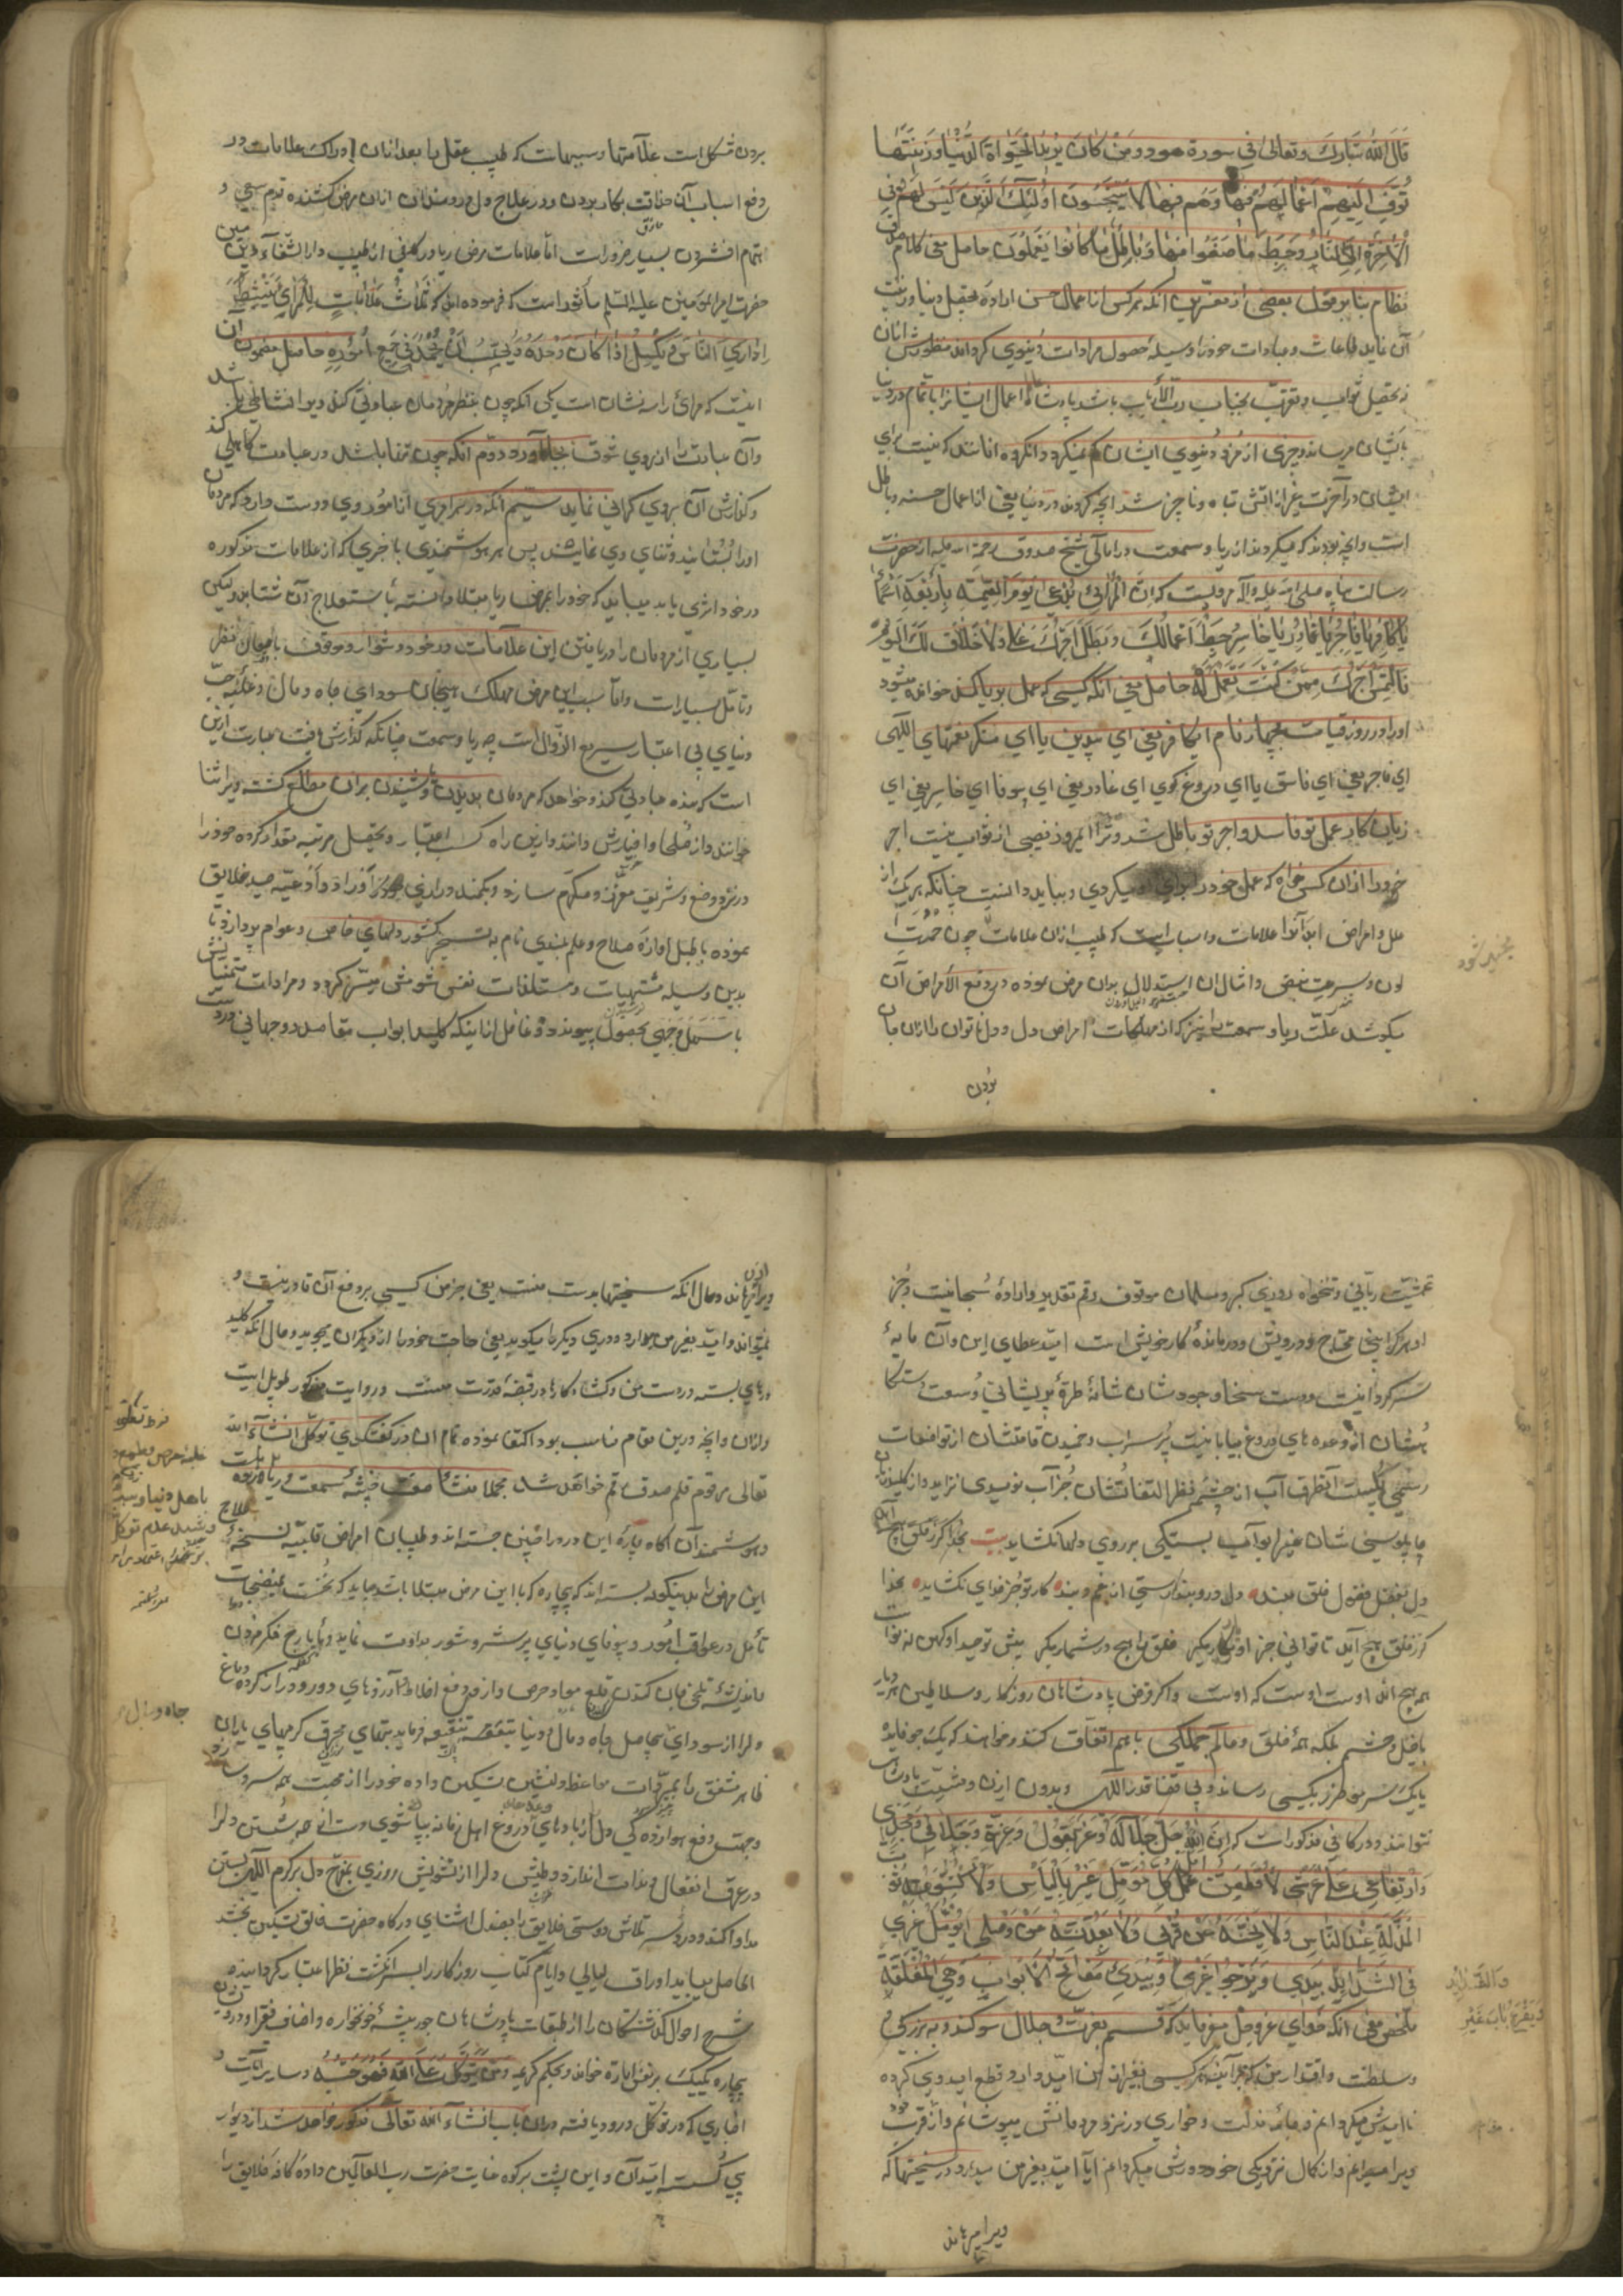 قَالَ اللّٰهُ تَبَارَكَ وَتَعَالٰى فِي سورة هود وَمَنْ كَانَ يُرِيدُ الْحَيٰوةَ الدُّنْيَا وَزِينَتَهَا
نُوَفِّ اِلَيْهِمْ اَعْمَالَهُمْ فِيهَا وَهُمْ فِيهَا لَا يُبْخَسُونَ اُولٰئِكَ الَّذِينَ لَيْسَ لَهُمْ فِي
الْاٰخِرَةِ اِلَّا النَّارُ وَحَبِطَ مَا صَنَعُوا فِيهَا وَبَاطِلٌ مَا كَانُوا يَعْمَلُونَ حاصل معنی کلام صدق
نظام بنا بر قول بعضی از مفسرین آنکه هر کس از اعمال حسن اراده تحصیل دنیا و زینت
آن نماید و طاعات و عبادات خود را وسیله حصول مرادات دنیوی کرداند منظورش از آن
نه تحصیل ثواب و تقرب بجناب رب الأرباب باشد پاداش اعمال ایشانرا بتمام در دنیا
بایشان میرساند و چیزی از مزد دنیوی ایشان کم نمیکردد آنکروه انانند که نیست برای
ایشان در آخرت بغیر از آتش تباه و ناچیز شد آنچه کردند در دنیا یعنی از اعمال حسنه و باطل
است و آنچه بودند که میکردند از ریا و سمعت در امالی شیخ صدوق رحمة الله علیه از حضرت
رسالت پناه صلی الله علیه و آله مرویست که اِنَّ الْمُرَائِي يُدْعٰى يَوْمَ الْقِيٰمَةِ بِاَرْبَعَةِ اَسْمَاءٍ
يَا كَافِرُ يَا فَاجِرُ يَا غَادِرُ يَا خَاسِرُ حَبِطَ اَعْمَالُكَ وَبَطَلَ اَجْرُكَ فَلَا خَلَاقَ لَكَ الْيَوْمَ
فَالْتَمِسْ اَجْرَكَ مِمَّنْ كُنْتَ تَعْمَلُ لَهُ حاصل معنی آنکه کسی که عمل بریا کند خوانده میشود
او را در روز قیامت بچهار نام ای کافر یعنی ای بیدین یا ای منکر نعمتهای الهی
ای فاجر یعنی ای فاسق یا ای دروغ کوی ای غادر یعنی ای بیوفا ای خاسر یعنی ای
زیان کار عمل تو فاسد و اجر تو باطل شد و ترا امروز نصیبی از ثواب نیست اجر
خود را از آن کس خواه که عمل خود را برای او میکردی و بباید دانست چنانکه هر یک از
علل و امراض ابدانرا علامات و اسباب است که طبیب از آن علامات چون حمرت
لون و سرعت نبض و امثال آن استدلال بدان مرض نموده در دفع الأمراض آن
میکوشد علت ریا و سمعت نیز که از مهلکات امراض دل و دل ناتوان را از آن جان
بردن
بردن مشکل است علامتها و سببهاست که طبیب عقل را بعد از آن ادراک علامات در
دفع اسباب آن حذاقت بکار بردن و در علاج دل دردمندان از آن مرض کشنده قدم سعی و
اهتمام افشردن بسیار ضرور است اما علامات مرض ریا در کافی از طبیب دار الشفاء دین مبین
حضرت امیر المؤمنین علیه السلم مأثور است که فرموده اند که ثَلَاثُ عَلَامَاتٍ لِلْمُرَائِي يَنْشَطُ
اِذَا رَاَى النَّاسَ وَيَكْسَلُ اِذَا كَانَ وَحْدَهُ وَيُحِبُّ اَنْ يُحْمَدَ فِي جَمِيعِ اُمُورِهِ حاصل مضمون آن
اینست که مرائی را سه نشان است یکی آنکه چون بنظر مردمان عبادتی کند ویرا نشاطی باشد
وآن عبادت را از روی شوق بجا آورد دوم آنکه چون تنها باشد در عبادت کاهلی کند
و کذارش آن بروی کرانی نماید سیم آنکه در هر امری از امور وی دوست دارد که مردمان
او را بستایند و ثنای وی نمایند پس هر هوشمندی با خبری که از علامات مذکوره
در خود اثری یابد میباید که خود را بمرض ریا مبتلا دانسته باستعلاج آن شتابد ولیکن
بسیاری از مردمان را دریافتن این علامات در خود دشوار و موقوف بامعان نظر
وتأمل بسیار است واما سبب این مرض مهلک هیجان سودای جاه و مال وغلبه حب
دنیای بی اعتبار سریع الزوال است چه ریا و سمعت چنانکه کذارش یافت عبارت از این
است که بنده عبادتی کند و خواهد که مردمان بدیدن یا شنیدن بر آن مطلع کشته ویرا ثنا
خوانند و از صلحا و اخیارش دانند و از این راه کسب اعتبار و تحصیل مرتبه و مقدار کرده خود را
در نزد وضیع و شریف معزز و مکرم سازد و بکمند درازی اوراد و ادعیه صید خلایق
نموده با طبل آوازه صلاح و علم بلندی نام به تسخیر کشور دلهای خاص و عوام پردازد تا
بدین وسیله مشتهیات و مستلذات نفس شومش میسر کردد و مرادات متمنیاتش
باسهل وجهی بحصول پیوندد و غافل از اینکه کلید ابواب مقاصد دو جهانی در دست
مشیت ربانی و تنخواه روزی کبر و مسلمان موقوف رقم تقدیر و اراده سبحانیست و جز
او هر کرا بینی محتاج و درویش و درمانده کار خویش است امید عطای این و آن مایه
سرکردانیست و دست سخا و جودشان شانه طره پریشانی وسعت
شان از وعده های دروغ بیابانیست پر سراب و خمیدن قامتشان از تواضعات
رسمی آب از چشم نظر التفاتشان جز آب نومیدی نزاید و از کلید زبان
چاپلوسی شان بغیر ابواب بستکی بر روی دلها نکشاید بیت بخدا کر ز خلق هیچ آید
دل بفضل فضول خلق مبند دل در او بند رستی از غم و بند کار تو جز خدای نکشاید بخدا
کر ز خلق هیچ آید تا توانی جز او بیار مکیر خلق را هیچ در شمار مکیر بیش توحید او کهن نه نو است
همه هیچ اند اوست اوست که اوست و اکر فرض پادشاهان روزکار و سلاطین هر دیار
با خیل و حشم بلکه همه خلق و عالم جملکی باهم اتفاق کنند و خواهند که یک جو فایده
یا یک سر مو ضرر بکسی رسانند بی قضا و قدر الهی و بدون اذن و مشیت پادشاهی
نتوانند و در کافی مذکور است که اِنَّ اللّٰهَ جَلَّ جَلَالُهُ وَعَزَّ يَقُولُ وَعِزَّتِي وَجَلَالِي وَمَجْدِي
وَارْتِفَاعِي عَلٰى عَرْشِي لَاُقَطِّعَنَّ اَمَلَ كُلِّ مُؤَمِّلٍ غَيْرِي بِالْيَأْسِ وَلَاَكْسُوَنَّهُ ثَوْبَ
الْمَذَلَّةِ عِنْدَ النَّاسِ وَلَاُنَحِّيَنَّهُ مِنْ قُرْبِي وَلَاُبَعِّدَنَّهُ مِنْ وَصْلِي اَيُؤَمِّلُ غَيْرِي
فِي الشَّدَائِدِ بِيَدِي وَيَرْجُو غَيْرِي وَبِيَدِي مَفَاتِيحُ الْاَبْوَابِ وَهِيَ الْمُغْلَقَةُ
ملخص معنی آنکه خدای عز و جل میفرماید که قسم بعزت و جلال سوکند و به بزرکی
و سلطنت و اقتدار من که هر آینه هر کسی بغیر از من امید دارد قطع امید وی کرده
ناامیدش میکردانم و جامه مذلت و خواری در نزد مردمانش میپوشانم و از قرب خود
ویرا میرانم و از کمال نزدیکی خود دورش میکردانم آیا امید بغیر من میدارد در سختیها که
ویرا میرهاند
ویرا از آن میرهاند و حال آنکه سختیها بدست منست یعنی بجز من کسی بر دفع آن قادر نیست و
نمیتواند و امید بغیر من میدارد و در دیکری را میکوبد یعنی حاجت خود را از دیکران میجوید و حال آنکه کلید
درهای بسته در دست من و کشاد کارها در قبضه قدرت منست و روایت مذکور طویل است
و از آن آنچه در این مقام مناسب بود اکتفا نموده تمام آن در توکل انشاء الله
تعالی مرقوم قلم صدق رقم خواهد شد مجملا منشأ صفت خبیثه سمعت و ریا
و هوشمندان آکاه چاره این درد را چنین جسته اند و طبیبان امراض قلبیه نسخه علاج
این مرض را بدینکونه بسته اند که بیچاره که با این مرض مبتلا باشد باید که نخست بمنضجات
تأمل در عواقب امور و بیوفای دنیای پر شر و شور مداومت نماید و بایارج فکر مردن
و اندیشه تلخی جان کندن قلع مواد حرص و از و دفع اخلاط آرزوهای دور و دراز کرده دماغ
دلرا از سودای بیحاصل جاه و مال دنیا تنقیه فرماید
ظاهر مشفق را بمبردات مواعظ دلنشین تسکین داده خود را از محبت همه سرد سازد
و جهت دفع هوازدکی دل از بادهای دروغ اهل زمانه بپاشوی دست از همه شستن دلرا
در عرق انفعال و ندامت اندازد و طپش دلرا از تشویش روزی بمفرح دل بر کرم الهی بستن
مداوا کند و دردسر تلاش دوستی خلایق را بصندل اشنای درکاه حضرت خالق تسکین بخشد
الحاصل بباید اوراق لیالی و ایام کتاب روزکار را بسر انکشت نظر اعتبار کردانیده
شرح احوال کذشتکان را از طبقات پادشاهان جور پیشه خونخواره و اصناف فقرا و درویشان
بیچاره یکیک بر نفس اماره خواند و بحکم کریمه وَمَنْ يَتَوَكَّلْ عَلَى اللّٰهِ فَهُوَ حَسْبُهُ و سایر آیات و
اخباری که در توکل ورود یافته و در آن باب انشاء الله تعالی مذکور خواهد شد از دیوار
پی کسسته امید آن و این پشت بر کوه عنایت حضرت رب العالمین داده کافه خلایق را
جاه و مال